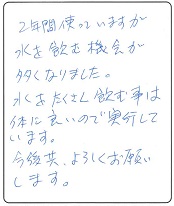 2年間使っていますが
水を飲む機会が
多くなりました。
水をたくさん飲む事は
体に良いので実行して
います。
今後共、よろしくお願い
します。